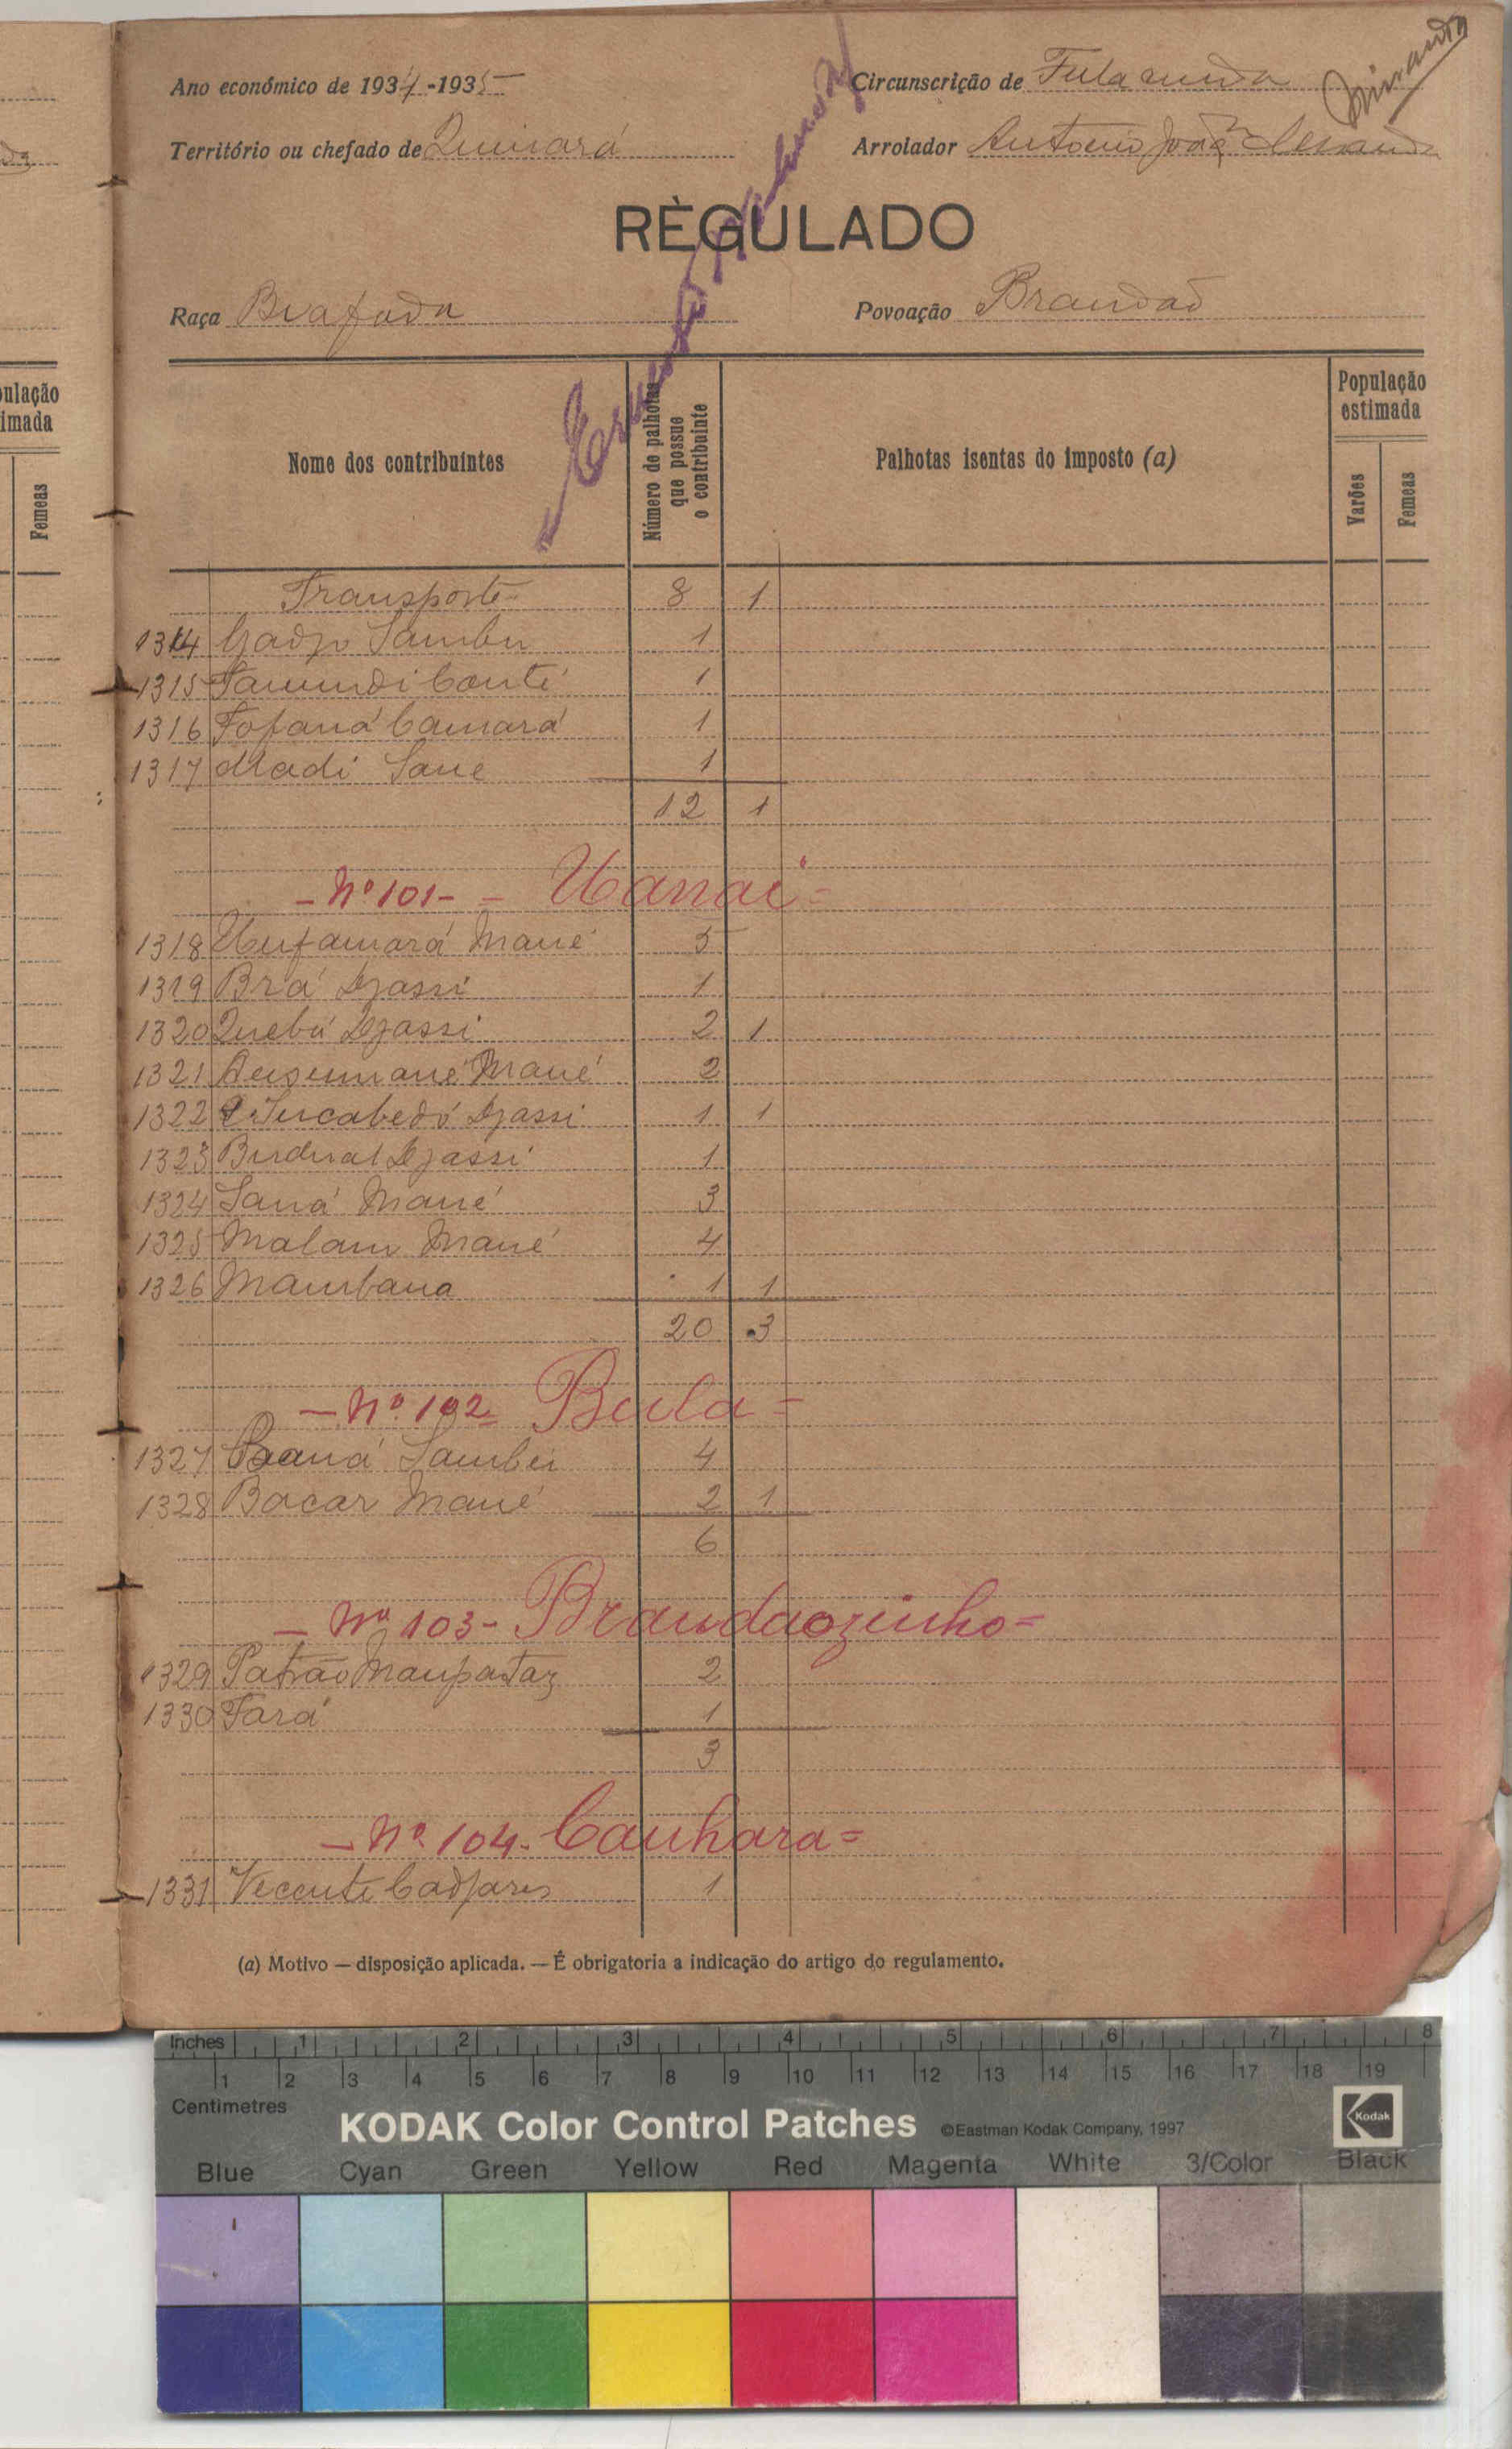 Ano económico de 1934-1935
Circunscrição de Fulacunda
Miranda
Território ou chefado de Quinará
Arrolador Antonio João Miranda
RÈGULADO
Raça Biafada
Povoação Brandão
Nome dos contribuintes
Número de palhotas que possue o contribuinte
Palhotas isentas do imposto (a)
População estimada
Varões
Femeas
ulação
imada
Femeas
Transporte 8 1
1314 Gadjo Sambu 1
1315 Famundi Conté 1
1316 Fofaná Camará 1
1317 Madi Sane 1
12 1
- Nº 101 - - Uanai =
1318 Unfamará Mané 5
1319 Brá Djassi 1
1320 Quebá Djassi 2 1
1321 Aussumané Mané 2
1322 Djassi 1 1
1323 Djassi 1
1324 Saná Mané 3
1325 Malam Mané 4
1326 Mambana 1 1
20 3
- Nº 102 Bula =
1327 Sambu 4
1328 Bacar Mané 2 1
6
- Nº 103 - Brandãozinho =
1329 Patrão Manpataz 2
1330 Fará 1
3
- Nº 104 - Canhara =
1331 Vicente 1
(a) Motivo — disposição aplicada. — É obrigatoria a indicação do artigo do regulamento.
Inches 1 2 3 4 5 6 7 8
1 2 3 4 5 6 7 8 9 10 11 12 13 14 15 16 17 18 19
Centimetres
KODAK Color Control Patches ©Eastman Kodak Company, 1997 Kodak
Blue Cyan Green Yellow Red Magenta White 3/Color Black